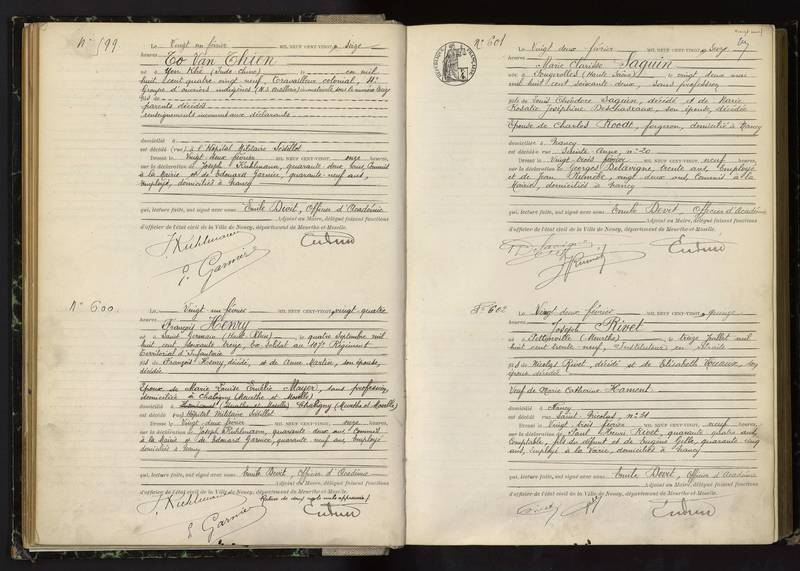 N° 599
Le Vingt un février MIL NEUF CENT-VINGT, seize
heures
To Van Thien
né à Yen Khé (Indo-Chine) le en mil
huit cent quatre vingt neuf, travailleur colonial,
Groupe d'ouvriers indigènes
fils de
parents décédés
renseignements inconnus aux déclarants
domicilié à
est décédé (rue) à l'Hôpital Militaire Sédillot
Dressé le Vingt deux février MIL NEUF CENT-VINGT, onze heures,
sur la déclaration de Joseph Kuhlmann, quarante deux ans, Commis
à la Mairie et de Edouard Garnier, quarante neuf ans,
employé, domiciliés à Nancy
qui, lecture faite, ont signé avec nous Emile Devit, Officier d'Académie
Adjoint au Maire, délégué faisant fonctions
d'officier de l'état civil de la Ville de Nancy, département de Meurthe-et-Moselle.
J. Kuhlmann
E. Garnier
N° 600
Le Vingt un février MIL NEUF CENT-VINGT, vingt quatre
heures
François Henry
né à Saint Germain (Haut-Rhin), le quatre Septembre mil
huit cent soixante treize, Ex-Soldat au 107e Régiment
Territorial d'Infanterie
fils de François Henry, décédé, et de Anne Martin, son épouse,
décédée
Epoux de Marie Louise Emélie Mayer, sans profession,
domiciliée à Chaligny (Meurthe et Moselle)
domicilié à Chaligny (Meurthe et Moselle)
est décédé rue Hôpital Militaire Sédillot
Dressé le Vingt deux février MIL NEUF CENT-VINGT, onze heures,
sur la déclaration de Joseph Kuhlmann, quarante deux ans, Commis
à la Mairie et de Edouard Garnier, quarante neuf ans, employé
domiciliés à Nancy
qui, lecture faite, ont signé avec nous Emile Devit, Officier d'Académie
Adjoint au Maire, délégué faisant fonctions
d'officier de l'état civil de la Ville de Nancy, département de Meurthe-et-Moselle.
J. Kuhlmann
E. Garnier
N° 601
Le Vingt deux février MIL NEUF CENT-VINGT, seize
heures
Marie Clarisse Saguin
née à Fougerolles (Haute Saône) le vingt deux mai
mil huit cent soixante deux, sans profession
fille de Louis Théodore Saguin, décédé et de Marie
Rosalie Joséphine Deschaseaux, son épouse, décédée
Epouse de Charles Koodt, forgeron, domicilié à Nancy
domiciliée à Nancy
est décédée rue Sainte-Anne, n° 20
Dressé le Vingt trois février MIL NEUF CENT-VINGT, neuf heures,
sur la déclaration de Georges Delavigne, trente ans, Employé
et de Jean vingt deux ans, Commis à la
Mairie, domiciliés à Nancy
qui, lecture faite, ont signé avec nous Emile Devit, Officier d'Académie
Adjoint au Maire, délégué faisant fonctions
d'officier de l'état civil de la Ville de Nancy, département de Meurthe-et-Moselle.
N° 602
Le Vingt deux février MIL NEUF CENT-VINGT, quinze
heures
Joseph Rivet
né à Pettonville (Meurthe) le treize Juillet mil
huit cent trente neuf, Instituteur en retraite
fils de Nicolas Rivet, décédé et de Elisabeth son
épouse décédée
Veuf de Marie Catherine Hament
domicilié à Nancy
est décédé rue Saint-Nicolas, n° 31
Dressé le Vingt trois février MIL NEUF CENT-VINGT, neuf heures,
sur la déclaration de Paul Henri Rivet, quarante quatre ans,
Comptable, fils du défunt et de Eugène Gille, quarante cinq
ans, employé à la Voirie, domiciliés à Nancy
qui, lecture faite, ont signé avec nous Emile Devit, Officier d'Académie
Adjoint au Maire, délégué faisant fonctions
d'officier de l'état civil de la Ville de Nancy, département de Meurthe-et-Moselle.